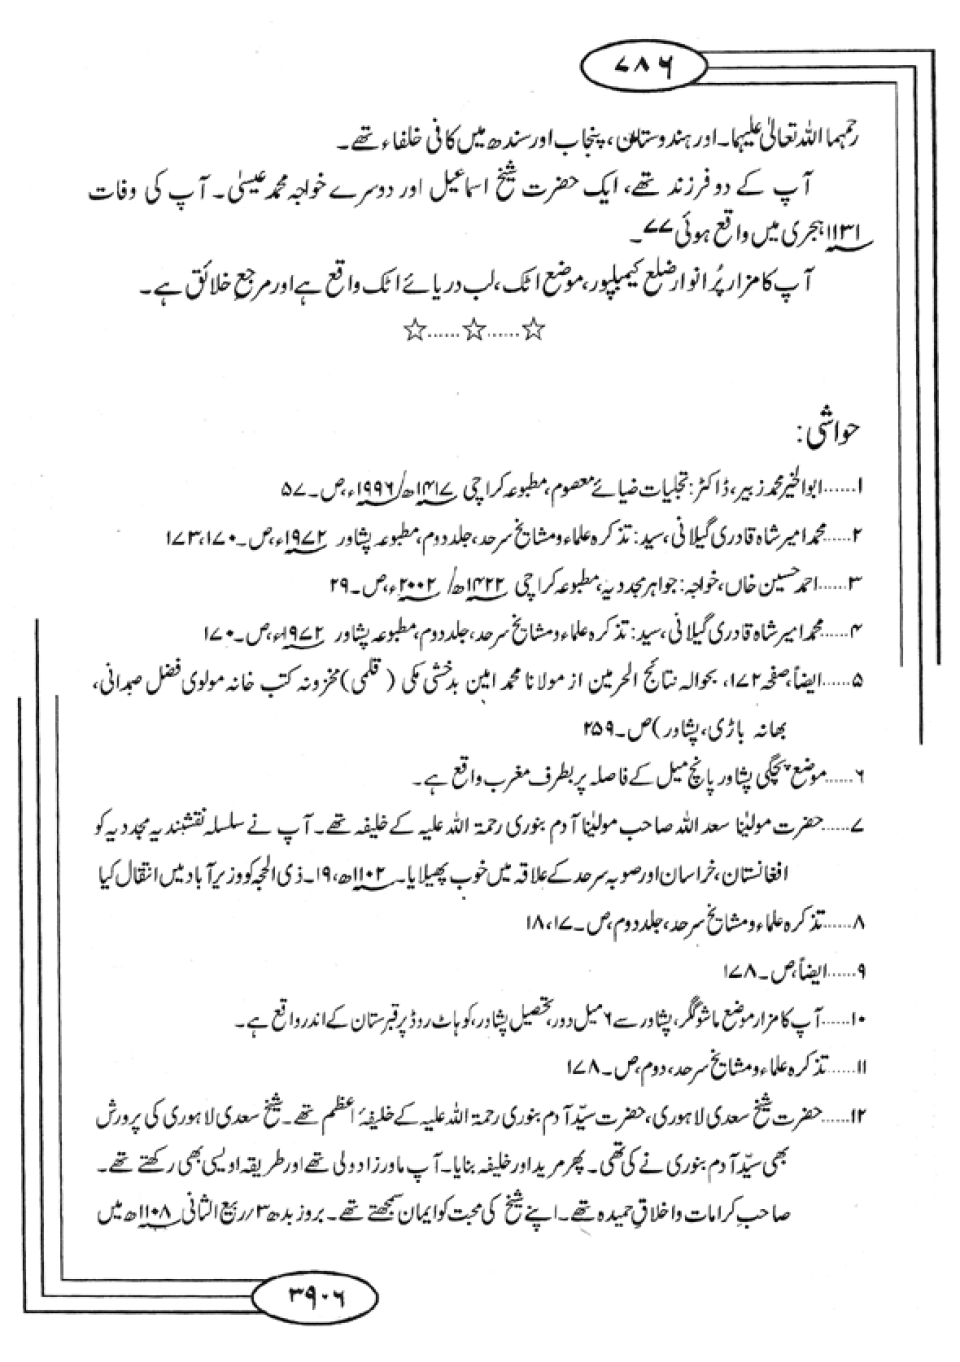 ۷۸۶
رحمہما اللہ تعالیٰ علیہما۔ اور ہندوستان، پنجاب اور سندھ میں کافی خلفاء تھے۔
آپ کے دو فرزند تھے، ایک حضرت شیخ اسماعیل اور دوسرے خواجہ محمد عیسیٰ۔ آپ کی وفات
۱۱۳۱ ہجری میں واقع ہوئی ۷۷۔
آپ کا مزار پُر انوار ضلع کیمبلپور، موضع اٹک، لب دریائے اٹک واقع ہے اور مرجع خلائق ہے۔
☆......☆......☆
حواشی:
۱......ابوالخیر محمد زبیر، ڈاکٹر: تجلیات ضیائے معصوم، مطبوعہ کراچی ۱۴۱۷ھ/۱۹۹۶ء، ص۔۵۷
۲......محمد امیر شاہ قادری گیلانی، سید: تذکرہ علماء و مشایخ سرحد، جلد دوم، مطبوعہ پشاور ۱۹۷۲ء، ص۔۱۷۰، ۱۷۳
۳......احمد حسین خاں، خواجہ: جواہر مجددیہ، مطبوعہ کراچی ۱۴۲۲ھ/ ۲۰۰۲ء، ص۔۲۹
۴......محمد امیر شاہ قادری گیلانی، سید: تذکرہ علماء و مشایخ سرحد، جلد دوم، مطبوعہ پشاور ۱۹۷۲ء، ص۔۱۷۰
۵......ایضاً، صفحہ ۱۷۲، بحوالہ نتائج الحرمین از مولانا محمد امین بدخشی مکی (قلمی) مخزونہ کتب خانہ مولوی فضل صمدانی،
بھانہ باڑی، پشاور) ص۔۲۵۹
۶......موضع پجگی پشاور پانچ میل کے فاصلہ پر بطرف مغرب واقع ہے۔
۷......حضرت مولیٰنا سعد اللہ صاحب مولیٰنا آدم بنوری رحمۃ اللہ علیہ کے خلیفہ تھے۔ آپ نے سلسلہ نقشبندیہ مجددیہ کو
افغانستان، خراسان اور صوبہ سرحد کے علاقہ میں خوب پھیلایا۔ ۱۱۰۲ھ، ۱۹۔ ذی الحجہ کو وزیر آباد میں انتقال کیا
۸......تذکرہ علماء و مشایخ سرحد، جلد دوم، ص۔۱۷، ۱۸
۹......ایضاً، ص۔۱۷۸
۱۰......آپ کا مزار موضع ماشوگگر، پشاور سے ۶ میل دور، تحصیل پشاور، کوہاٹ روڈ پر قبرستان کے اندر واقع ہے۔
۱۱......تذکرہ علماء و مشایخ سرحد، دوم، ص۔۱۷۸
۱۲......حضرت شیخ سعدی لاہوری، حضرت سیّد آدم بنوری رحمۃ اللہ علیہ کے خلیفۂ اعظم تھے۔ شیخ سعدی لاہوری کی پرورش
بھی سیّد آدم بنوری نے کی تھی۔ پھر مرید اور خلیفہ بنایا۔ آپ مادر زاد ولی تھے اور طریقہ اویسی بھی رکھتے تھے۔
صاحبِ کرامات و اخلاقِ حمیدہ تھے۔ اپنے شیخ کی محبت کو ایمان سمجھتے تھے۔ بروز بدھ ۳/ ربیع الثانی ۱۱۰۸ھ میں
۳۹۰۶